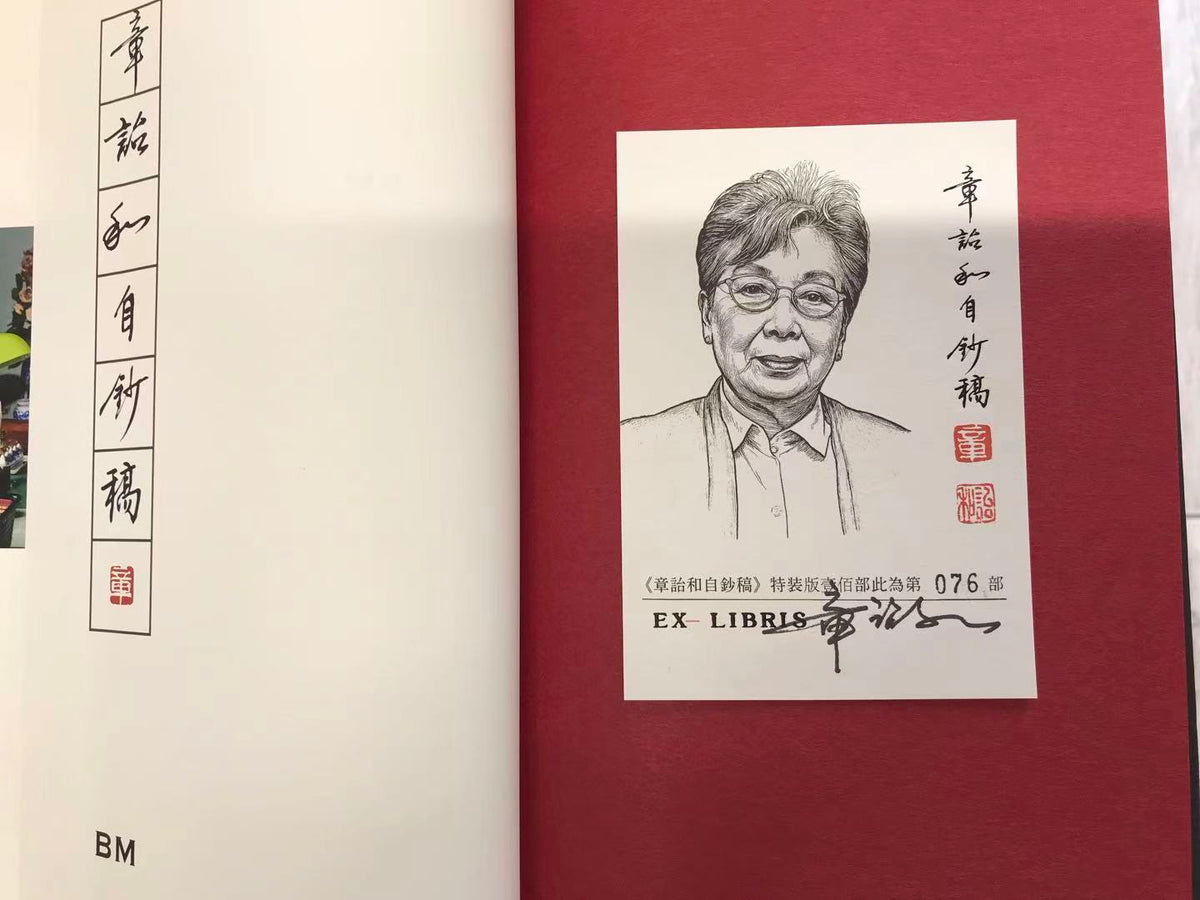 章詒和自鈔稿
章
BM
章詒和自鈔稿
章
詒和
《章詒和自鈔稿》特裝版壹佰部此為第 076 部
EX-LIBRIS
章詒和